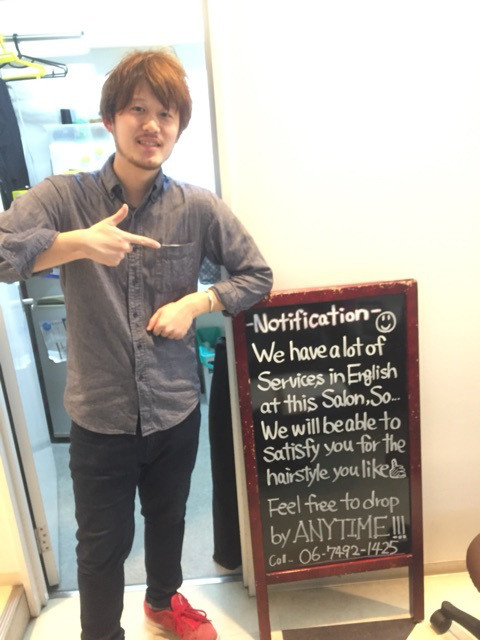 -Notification-
We have a lot of
Services in English
at this Salon, So...
We will be able to
satisfy you for the
hairstyle you like
Feel free to drop
by ANYTIME!!!
Call.. 06-7492-1425